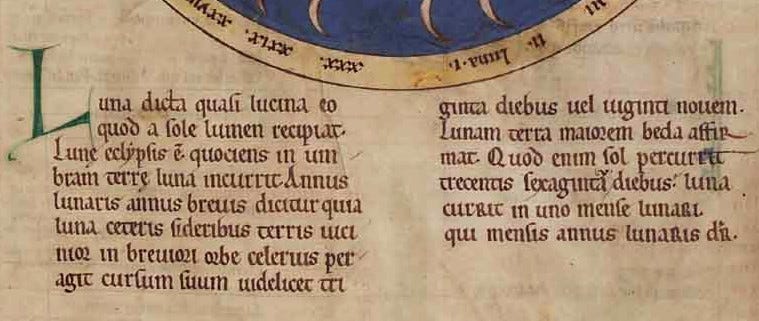 xxviii. xxix. xxx. luna .i. ii. iii
Luna dicta quasi lucina eo
quod a sole lumen recipiat.
Lune eclypsis ē. quociens in um
bram terrę luna incurrit. Annus
lunaris annus breuis dicitur quia
luna ceteris sideribus terris uici
nior in breuiori orbe celerius per
agit cursum suum uidelicet tri
ginta diebus uel uiginti nouem.
Lunam terra maiorem beda affir
mat. Quod enim sol percurrit
trecentis sexaginta diebus: luna
currit in uno mense lunari.
qui mensis annus lunaris dr̄.